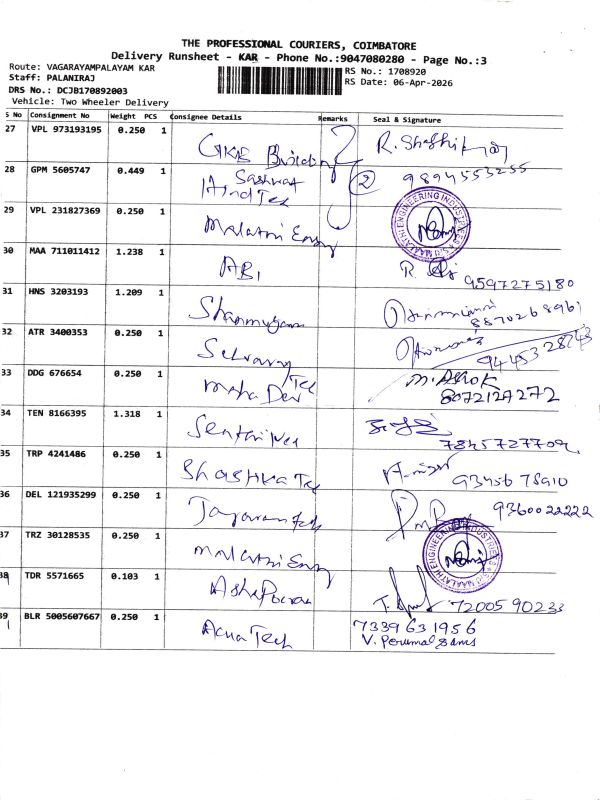 THE PROFESSIONAL COURIERS, COIMBATORE
Delivery Runsheet - KAR - Phone No.:9047080280 - Page No.:3
Route: VAGARAYAMPALAYAM KAR
RS No.: 1708920
Staff: PALANIRAJ
RS Date: 06-Apr-2026
DRS No.: DCJB170892003
Vehicle: Two Wheeler Delivery
S No Consignment No Weight PCS Consignee Details Remarks Seal & Signature
27 VPL 973193195 0.250 1
28 GPM 5605747 0.449 1 2 9894553255
29 VPL 231827369 0.250 1 Malathi Engg
30 MAA 711011412 1.238 1 ABI 9597275180
31 HNS 3203193 1.209 1 Shanmugam 8870268961
32 ATR 3400353 0.250 1 Selvaraj
33 DDG 676654 0.250 1 Maha Dev Tex M. ASHOK
8072127272
34 TEN 8166395 1.318 1
35 TRP 4241486 0.250 1 BHASHKA Tex
36 DEL 121935299 0.250 1 9360022222
37 TRZ 30128535 0.250 1 Malathi Engg
38 TDR 5571665 0.103 1 7200590233
39 BLR 5005607667 0.250 1 Acua Tech 7339631956
V. Perumal Sams